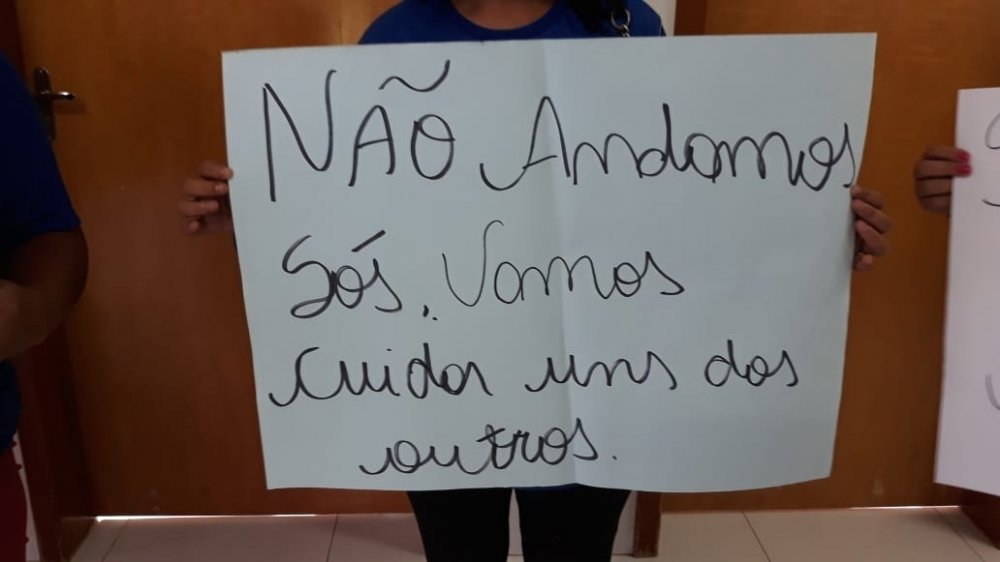 NÃO Andamos
Sós. Vamos
cuidar uns dos
outros.